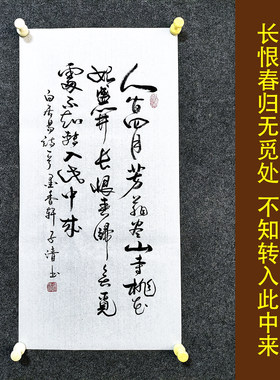 长恨春归无觅处 不知转入此中来
人间四月芳菲尽山寺桃花
始盛开长恨春歸無覓
處不知转入此中来
白居易诗一首墨香轩子清书